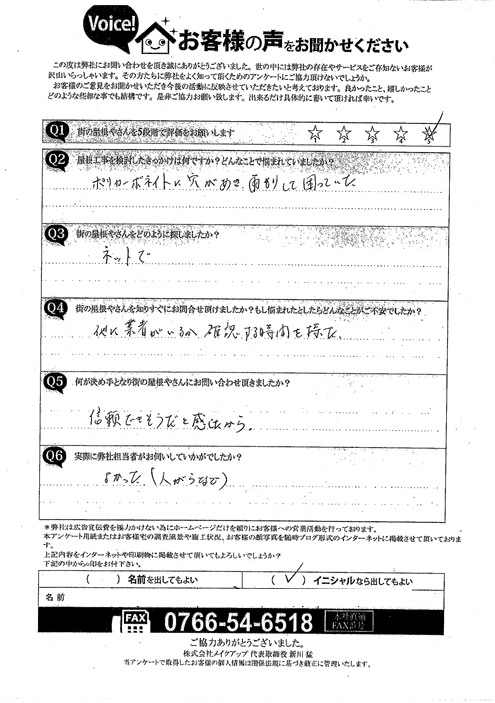 Voice!
お客様の声をお聞かせください
この度は弊社にお問い合わせを頂き誠にありがとうございました。世の中には弊社の存在やサービスをご存知ないお客様が
沢山いらっしゃいます。その方たちに弊社をよく知って頂くためのアンケートにご協力頂けないでしょうか。
お客様のご意見をお聞かせいただき今後の活動に反映させていただきたいと考えております。良かったこと、嬉しかったこと
どのような些細な事でも結構です。是非ご協力お願い致します。出来るだけ具体的に書いて頂ければ幸いです。
Q1 街の屋根やさんを5段階で評価をお願いします ☆ ☆ ☆ ☆ ☆
Q2 屋根工事を検討したきっかけは何ですか？どんなことで悩まれていましたか？
ポリカーボネイトに穴があき、雨もりして困っていた
Q3 街の屋根やさんをどのように探しましたか？
ネットで
Q4 街の屋根やさんを知りすぐにお問合せ頂けましたか？もし悩まれたとしたらどんなことがご不安でしたか？
他に業者がいるか確認する時間を様た、
Q5 何が決め手となり街の屋根やさんにお問い合わせ頂きましたか？
信頼できそうだと感じたから。
Q6 実際に弊社担当者がお伺いしていかがでしたか？
よかった（人がらなど）
＊弊社は広告宣伝費を極力かけない為にホームページだけを頼りにお客様への営業活動を行っております。
本アンケート用紙またはお客様宅の調査風景や施工状況、お客様の顔写真を随時ブログ形式のインターネットに掲載させて頂いておりま
す。
上記内容をインターネットや印刷物に掲載させて頂いてもよろしいでしょうか？
下記の中から○印をお付下さい。
（ ）名前を出してもよい （✓）イニシャルなら出してもよい
名前
FAX 0766-54-6518 本社直通 FAX番号
ご協力ありがとうございました。
株式会社メイクアップ 代表取締役 新川 猛
当アンケートで取得したお客様の個人情報は関係法規に基づき厳正に管理いたします。